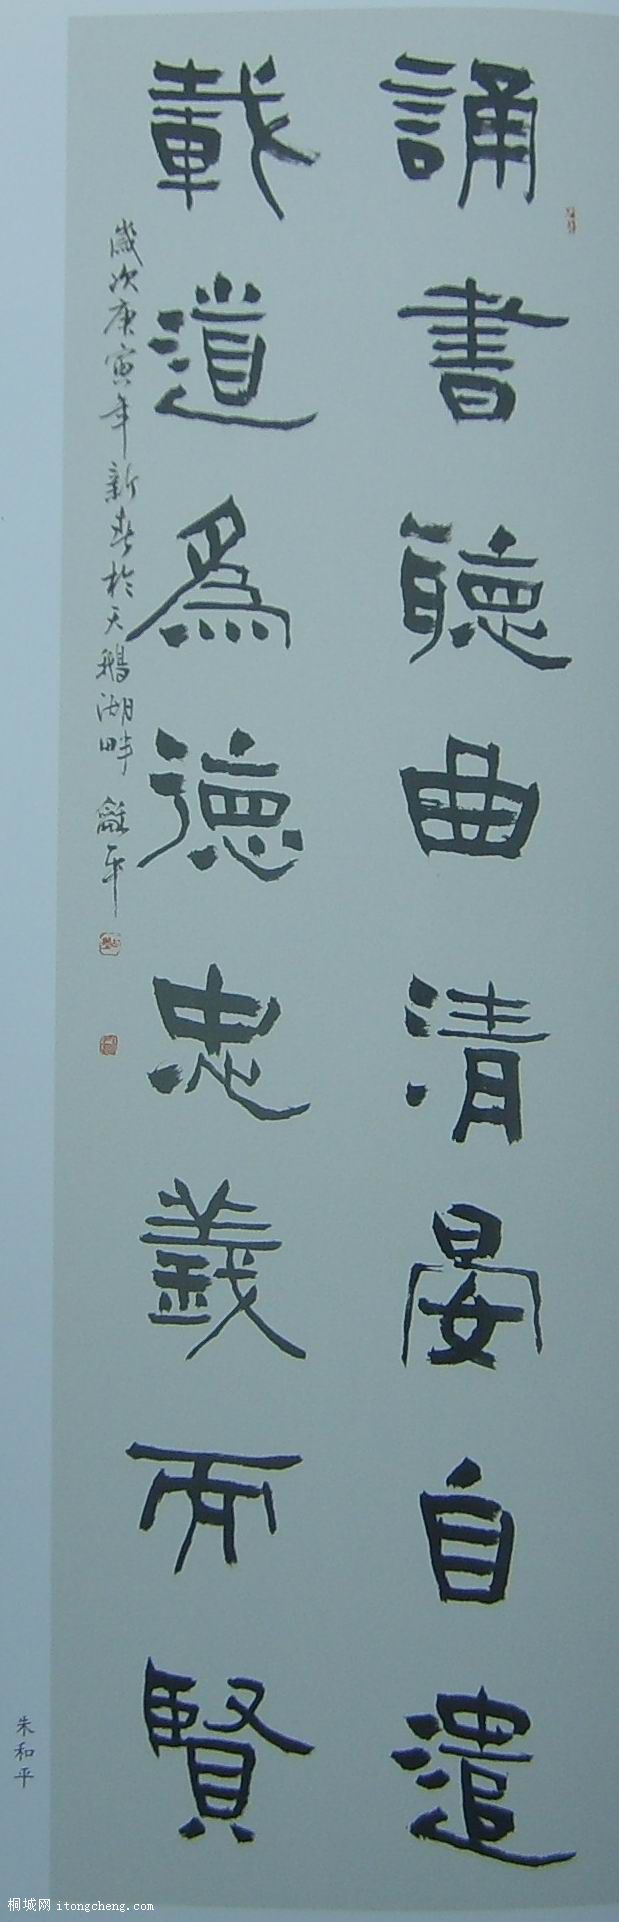 誦書聽曲清晏自遣
載道為德忠義而賢
歲次庚寅年新春於天鵝湖畔 龢平
朱和平
桐城网 itongcheng.com